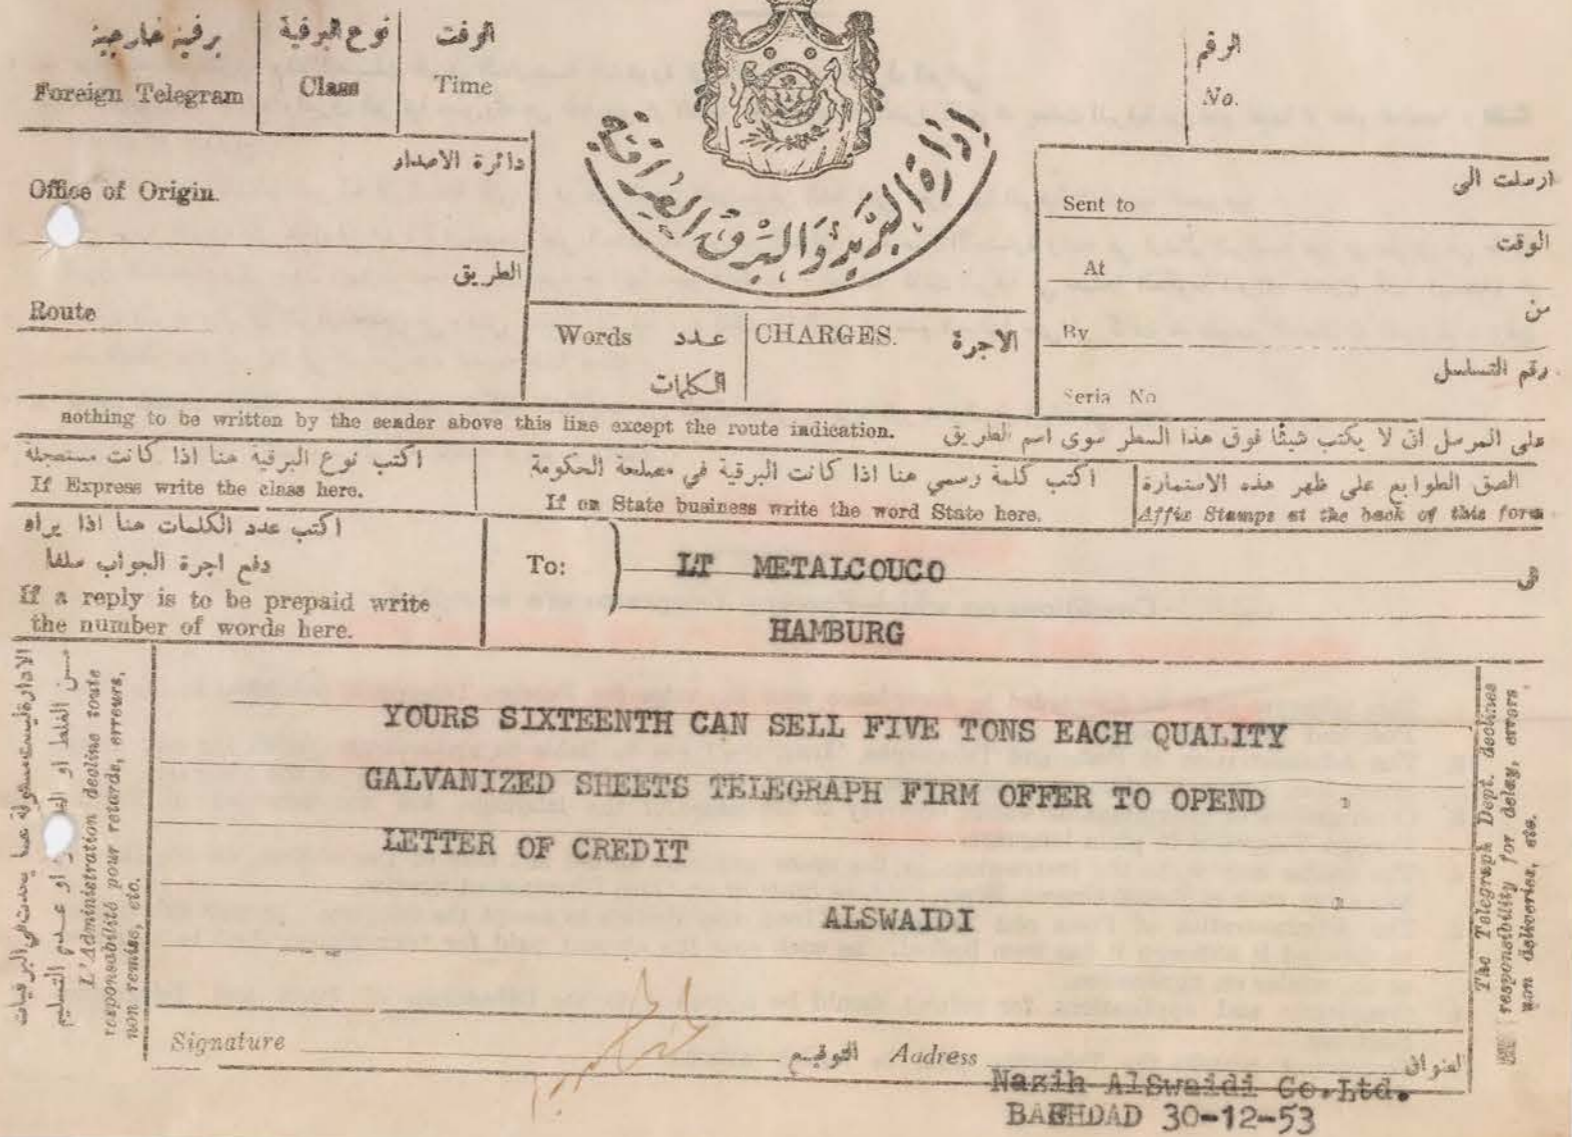 برقية خارجية
Foreign Telegram
نوع البرقية
Class
الوقت
Time
ادارة البريد والبرق العراقية
الرقم
No.
دائرة الاصدار
Office of Origin.
الطريق
Route
Words عدد الكلمات
CHARGES. الاجرة
ارسلت الى
Sent to
الوقت
At
من
By
رقم التسلسل
Seria No
nothing to be written by the sender above this line except the route indication. على المرسل ان لا يكتب شيئا فوق هذا السطر سوى اسم الطريق
اكتب نوع البرقية هنا اذا كانت مستعجلة
If Express write the class here.
اكتب كلمة رسمي هنا اذا كانت البرقية في مصلحة الحكومة
If on State business write the word State here.
الصق الطوابع على ظهر هذه الاستمارة
Affix Stamps at the back of this form
اكتب عدد الكلمات هنا اذا يراد
دفع اجرة الجواب سلفا
If a reply is to be prepaid write
the number of words here.
To: LT METALCOUCO
HAMBURG
الادارة ليست مسئولة عما يحدث في البرقيات
من الغلط او او عدم التسليم
L'Administration decline toute
responsabilité pour retards, erreurs,
non remise, etc.
YOURS SIXTEENTH CAN SELL FIVE TONS EACH QUALITY
GALVANIZED SHEETS TELEGRAPH FIRM OFFER TO OPEND
LETTER OF CREDIT
ALSWAIDI
The Telegraph Dept. declines
responsibility for delay, errors,
non deliveries, etc.
Signature التوقيع Address العنوان
Nazih AlSwaidi Co.Ltd.
BAGHDAD 30-12-53